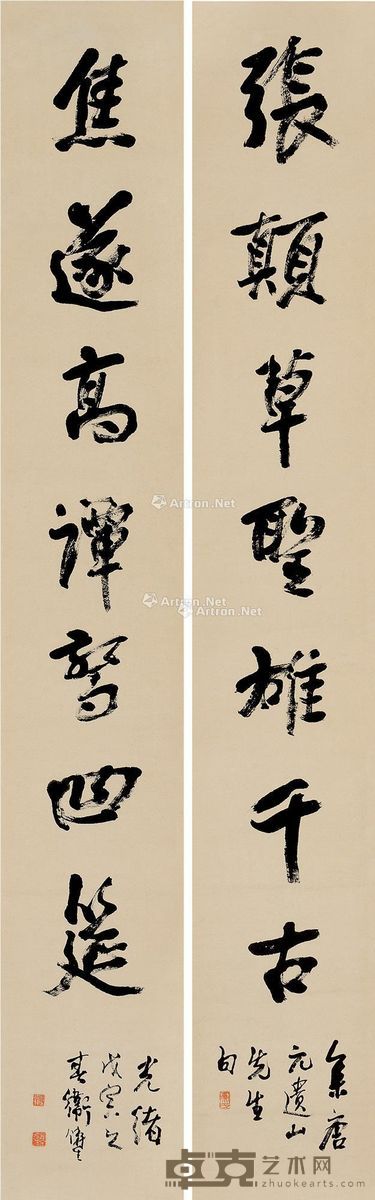 張顛草聖雄千古
集唐
元遺山
先生
句
焦遂高譚驚四筵
光緒
戊寅之
春
Artron.Net
Artron.Net
Artron.Net
卓克艺术网
www.zhuokearts.com